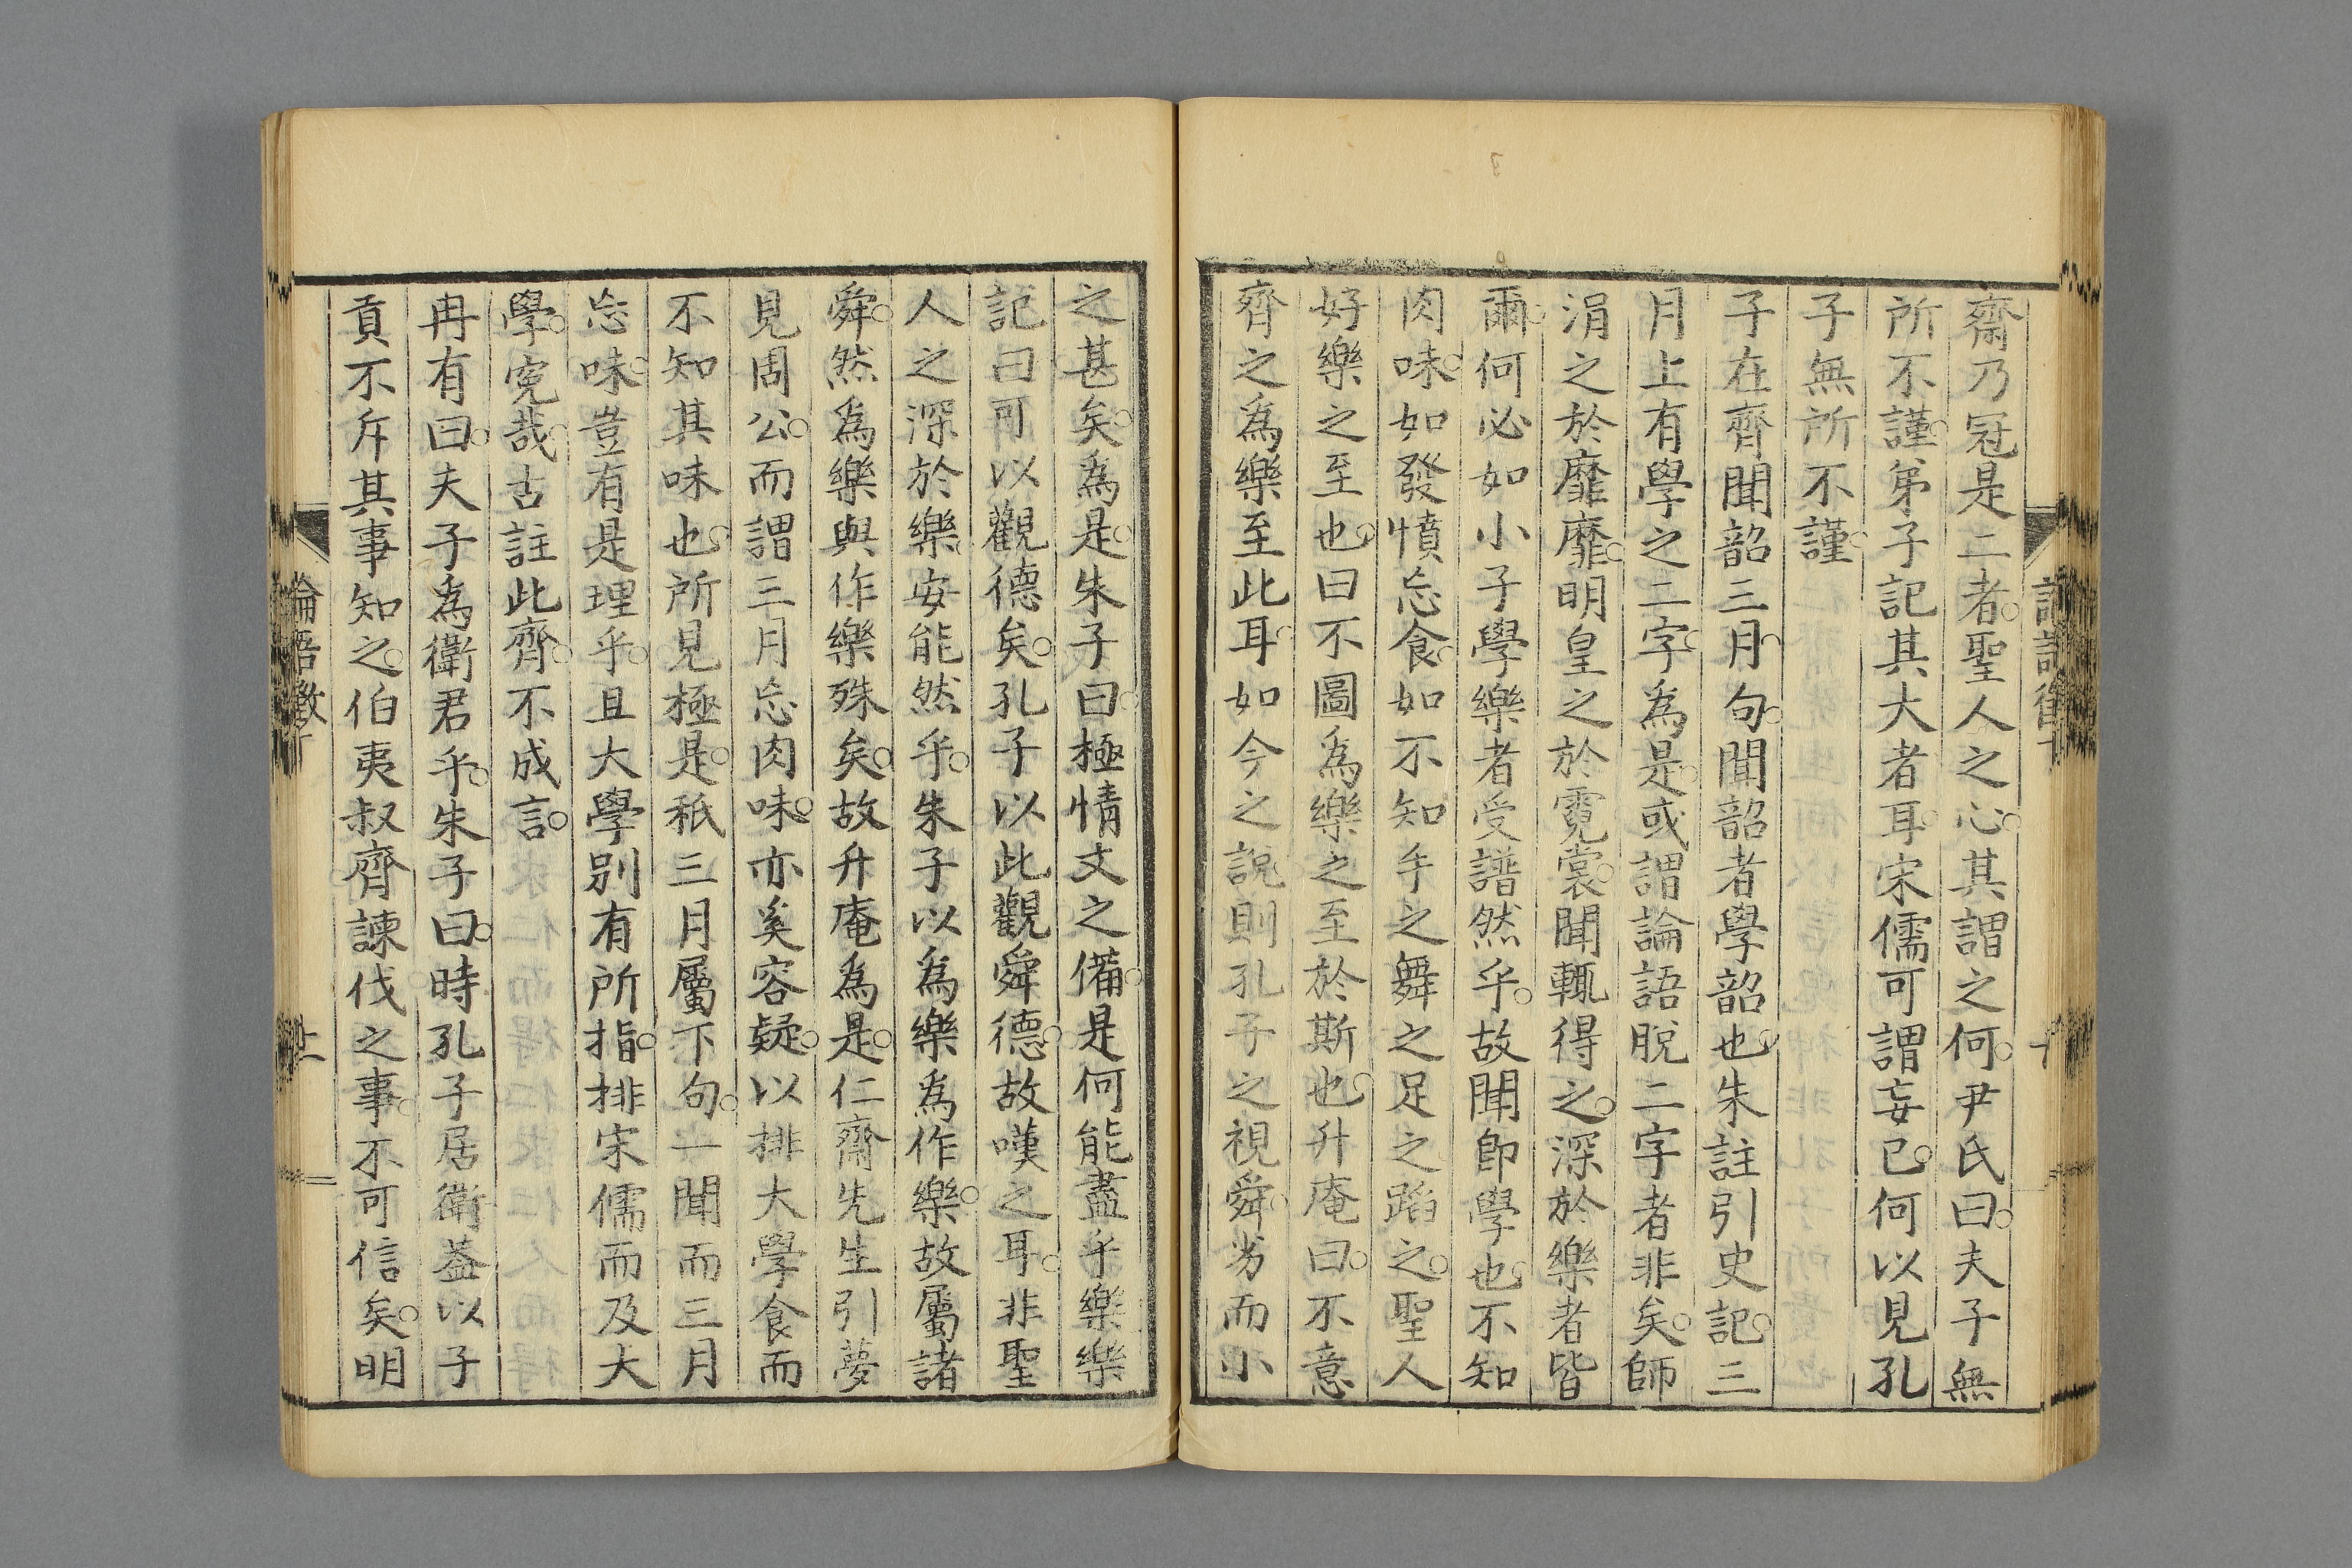 齋乃冠是二者聖人之心其謂之何尹氏曰夫子無
所不謹弟子記其大者耳宋儒可謂妄已何以見孔
子無所不謹
子在齊聞韶三月句聞韶者學韶也朱註引史記三
月上有學之二字為是或謂論語脫二字者非矣師
涓之於靡靡明皇之於霓裳聞輒得之深於樂者皆
爾何必如小子學樂者受譜然乎故聞即學也不知
肉味如發憤忘食如不知手之舞之足之蹈之聖人
好樂之至也曰不圖為樂之至於斯也升庵曰不意
齊之為樂至此耳如今之說則孔子之視舜劣而小
之甚矣為是朱子曰極情文之備是何能盡乎樂樂
記曰可以觀德矣孔子以此觀舜德故嘆之耳非聖
人之深於樂安能然乎朱子以為樂為作樂故屬諸
舜然為樂與作樂殊矣故升庵為是仁齋先生引夢
見周公而謂三月忘肉味亦奚容疑以排大學食而
不知其味也所見極是秖三月屬下句一聞而三月
忘味豈有是理乎且大學別有所指排宋儒而及大
學寃哉古註此齊不成言
冉有曰夫子為衛君乎朱子曰時孔子居衛蓋以子
貢不斥其事知之伯夷叔齊諫伐之事不可信矣明
論語徵丁